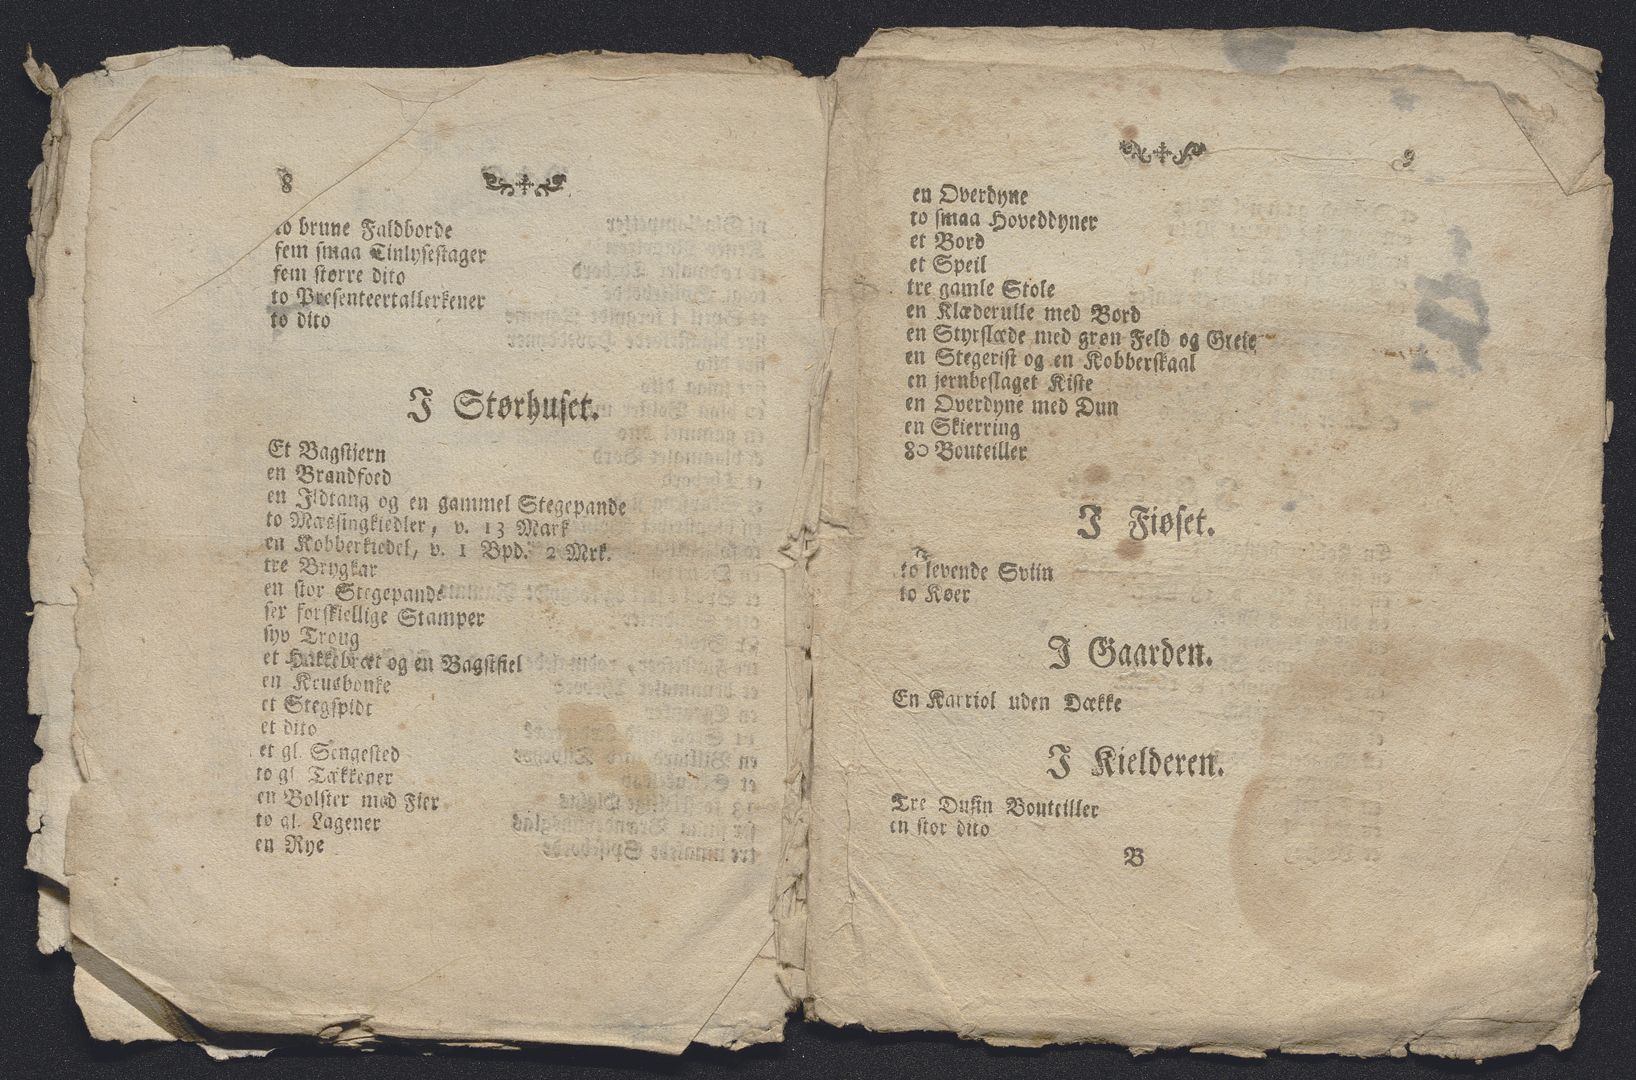 8
to brune Faldborde
fem smaa Tinlysestager
fem større dito
to Presenteertallerkener
to dito
I Størhuset.
Et Bagstjern
en Brandfoed
en Ildtang og en gammel Stegepande
to Mæssingkiedler, v. 13 Mark
en Kobberkiedel, v. 1 Bpd. 2 Mrk.
tre Brygkar
en stor Stegepande
sex forskiellige Stamper
syv Troug
et Hakkebræt og en Bagstfiel
en Keusbonke
et Stegspidt
et dito
et gl. Sengested
to gl. Tækkener
en Bolster med Fier
to gl. Lagener
en Rye
9
en Overdyne
to smaa Hoveddyner
et Bord
et Speil
tre gamle Stole
en Klæderulle med Bord
en Styrslæde med grøn Feld og Greie
en Stegerist og en Kobberskaal
en jernbeslaget Kiste
en Overdyne med Dun
en Skierring
80 Bouteiller
I Fiøset.
to levende Sviin
to Køer
I Gaarden.
En Karriol uden Dække
I Kielderen.
Tre Dusin Bouteiller
en stor dito
B